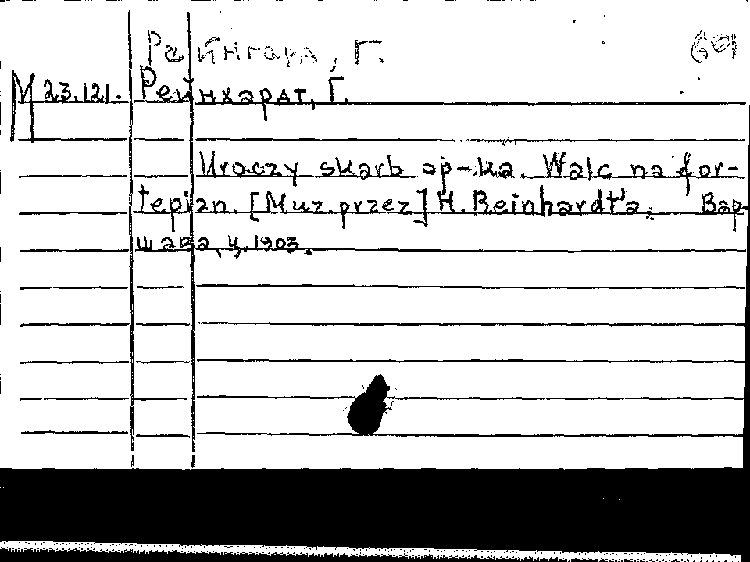 Рейнгард, Г. 69
М 23.121. Рейнхардт, Г.
Uroczy skarb op-ka. Walc na for-
tepian. [Muz. przez] H. Reinhardt'a. Вар-
шава, ц. 1903.